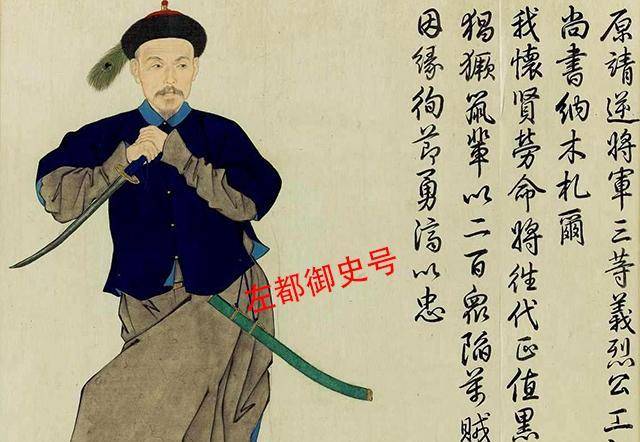 原靖逆將軍三等義烈公工
尚書納木札爾
我懷賢勞命將往代正值黑
猖獗鼠輩以二百眾陷萬賊
因緣徇節勇濟以忠
左都御史号